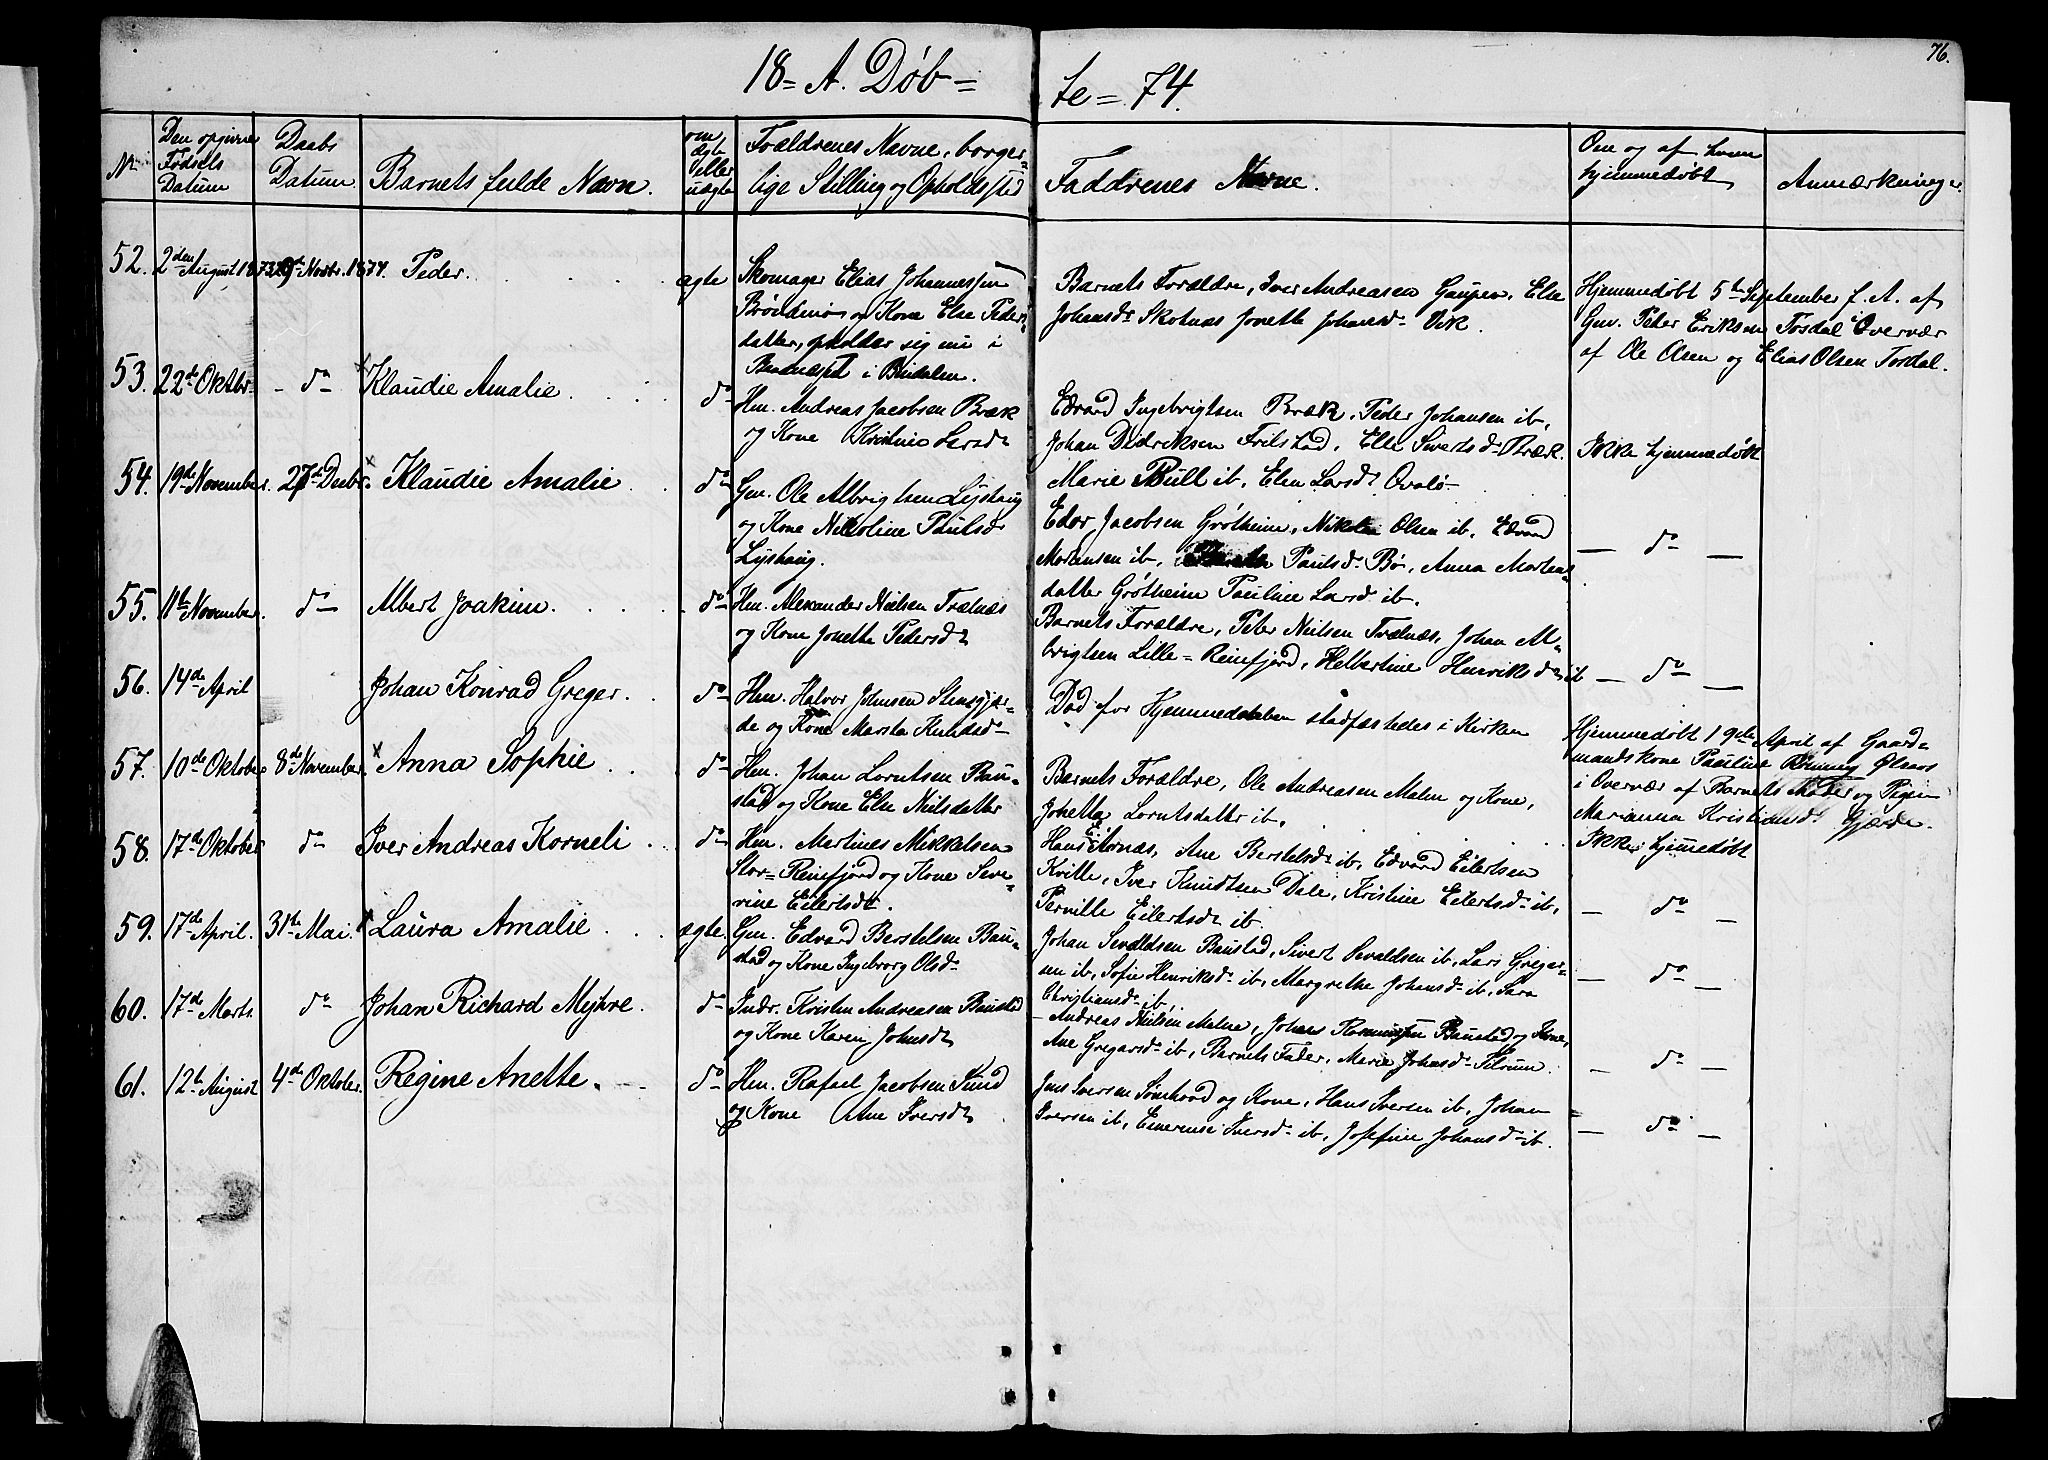 76.
18= A. Døb= te= 74.
No
Den opgivne
Fødsels
Datum
Daabs
Datum.
Barnets fulde Navn.
om
ægte
eller
uægte
Forældrenes Navne, borger=
lige Stilling og Opholdssted
Faddrenes Navne.
Om og af hvem
hjemmedøbt
Anmærkninger.
52. 2den August 1873 Novbr. 1874. Peder. ægte
Skomager Elias Johannessen
og Kone Else Peders=
datter, opholder sig nu i
i Bindalen.
Barnets Forældre, Iver Andreasen Gaupen, Else
Johansdr Skotnes Jonette Johansdr Vik.
Hjemmedøbt 5te September f. A. af
Gm. Peder Eriksen Tosdal i Overvær
af Ole Olsen og Elias Olsen Tosdal.
53. 22de Oktbr. do Klaudie Amalie do
Hm. Andreas Jacobsen Bræk
og Kone Kristine Larsdr
Edvard Ingebrigtsen Bræk, Peder Johansen ib,
Johan Didriksen Frilstad, Else Sivertsdr Bræk.
Marie Bull ib, Elen Larsdr
Ikke hjemmedøbt
54. 19de November. 27de Decbr. Klaudie Amalie do
Gm. Ole Albrigtsen Lyshaug
og Kone Nikoline Paulsdr
Lyshaug.
Edor Jacobsen Grøtheim, Nikolai Olsen ib, Edvard
Mortensen ib, Paulsdr Bø, Anna Mortens=
datter Grøtheim Pauline Larsdr ib.
— do —
55. 11te November. do Albert Joakim. do
Hm. Alexander Nielsen Trælnæs
og Kone Jonetta Pedersdr
Barnets Forældre, Peter Nielsen Trælnæs, Johan Al=
brigtsen Lille=Reinfjord, Helbertine Henriksdr ib
— do —
56. 14de April Johan Konrad Greger. do
Hm. Halvor Johnsen
og Kone Marta Knudsdr
Død før Hjemmedaaben stadfæstedes i Kirken
Hjemmedøbt 19de April af Gaard=
mandskone Pauline
i Overvær af Barnets Fader og Pigen
Marianna Kristiansdr Gjærde.
57. 10de Oktober 8de November. Anna Sophie do
Hm. Johan Lorntsen Bau=
stad og Kone Else Nielsdatter
Barnets Forældre, Ole Andreasen Malm og Kone,
Jonetta Lorntsdatter ib.
Ikke hjemmedøbt
58. 17de Oktober do Iver Andreas Korneli do
Hm. Martines Mikkelsen
Stor=Reinfjord og Kone Seve=
rine Eilertsdr.
Hans Ane Bertelsdr ib, Edvard Eilertsen
Kville, Iver Knudtsen Dale, Kristine Eilertsdr ib,
Pernille Eilertsdr ib.
— do —
59. 17de April. 31te Mai. Laura Amalie ægte.
Gm. Edvard Bertelsen Bau=
stad og Kone Ingeborg Olsdr
Johan Sevaldsen Baustad, Sivert Sevaldsen ib, Lars Greger=
sen ib, Sofie Henriksdr ib, Margrethe Johansdr ib, Sara
Christiansdr ib,
— do —
60. 17de Marts do Johan Richard Myhre. do
Indr. Kristen Andreasen Baustad
og Kone Karen Johnsdr
Andreas Nielsen Malm, Johan Rasmussen Baustad og Kone,
Ane Gregersdr ib, Barnets Fader, Marie Johansdr
— do —
61. 12te August 4de Oktober. Regine Anette. do
Hm. Rafael Jacobsen Sund
og Kone Ane Iversdr
Jens Iversen Sømhovd og Kone, Hans Iversen ib, Johan
Iversen ib, Emerense Iversdr ib, Josefine Johansdr ib.
— do —